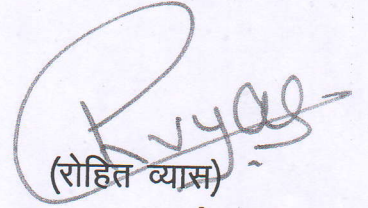 Rvyas
(रोहित व्यास)